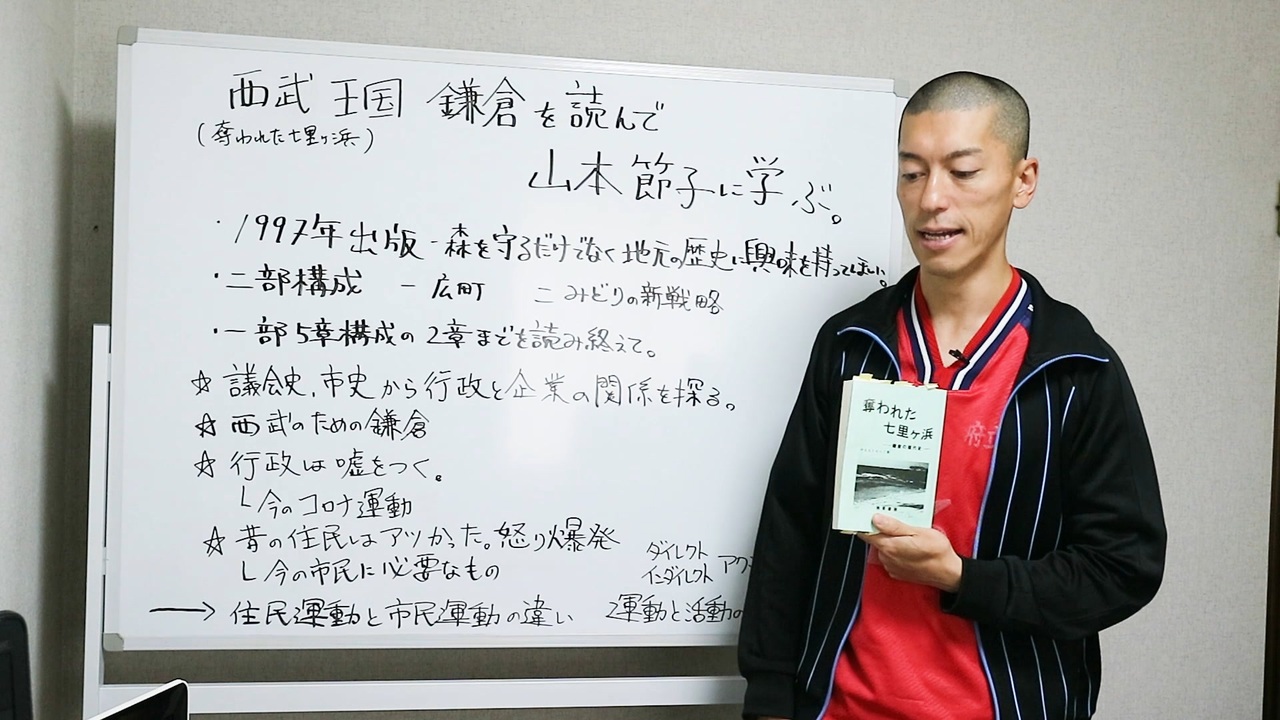 西武 王国 鎌倉を読んで
(奪われた七里ヶ浜)
山本節子に学ぶ。
・1997年出版 - 森を守るだけでなく地元の歴史に興味を持ってほしい。
・二部構成 一 広町 二 みどりの新戦略
・一部5章構成の2章までを読み終えて。
☆ 議会史、市史から行政と企業の関係を探る。
☆ 西武のための鎌倉
☆ 行政は嘘をつく。
└ 今のコロナ運動
☆ 昔の住民はアツかった。怒り爆発
└ 今の市民に必要なもの
ダイレクト
インダイレクト アク
→ 住民運動と市民運動の違い 2運動と活動の
奪われた
七里ヶ浜
府立